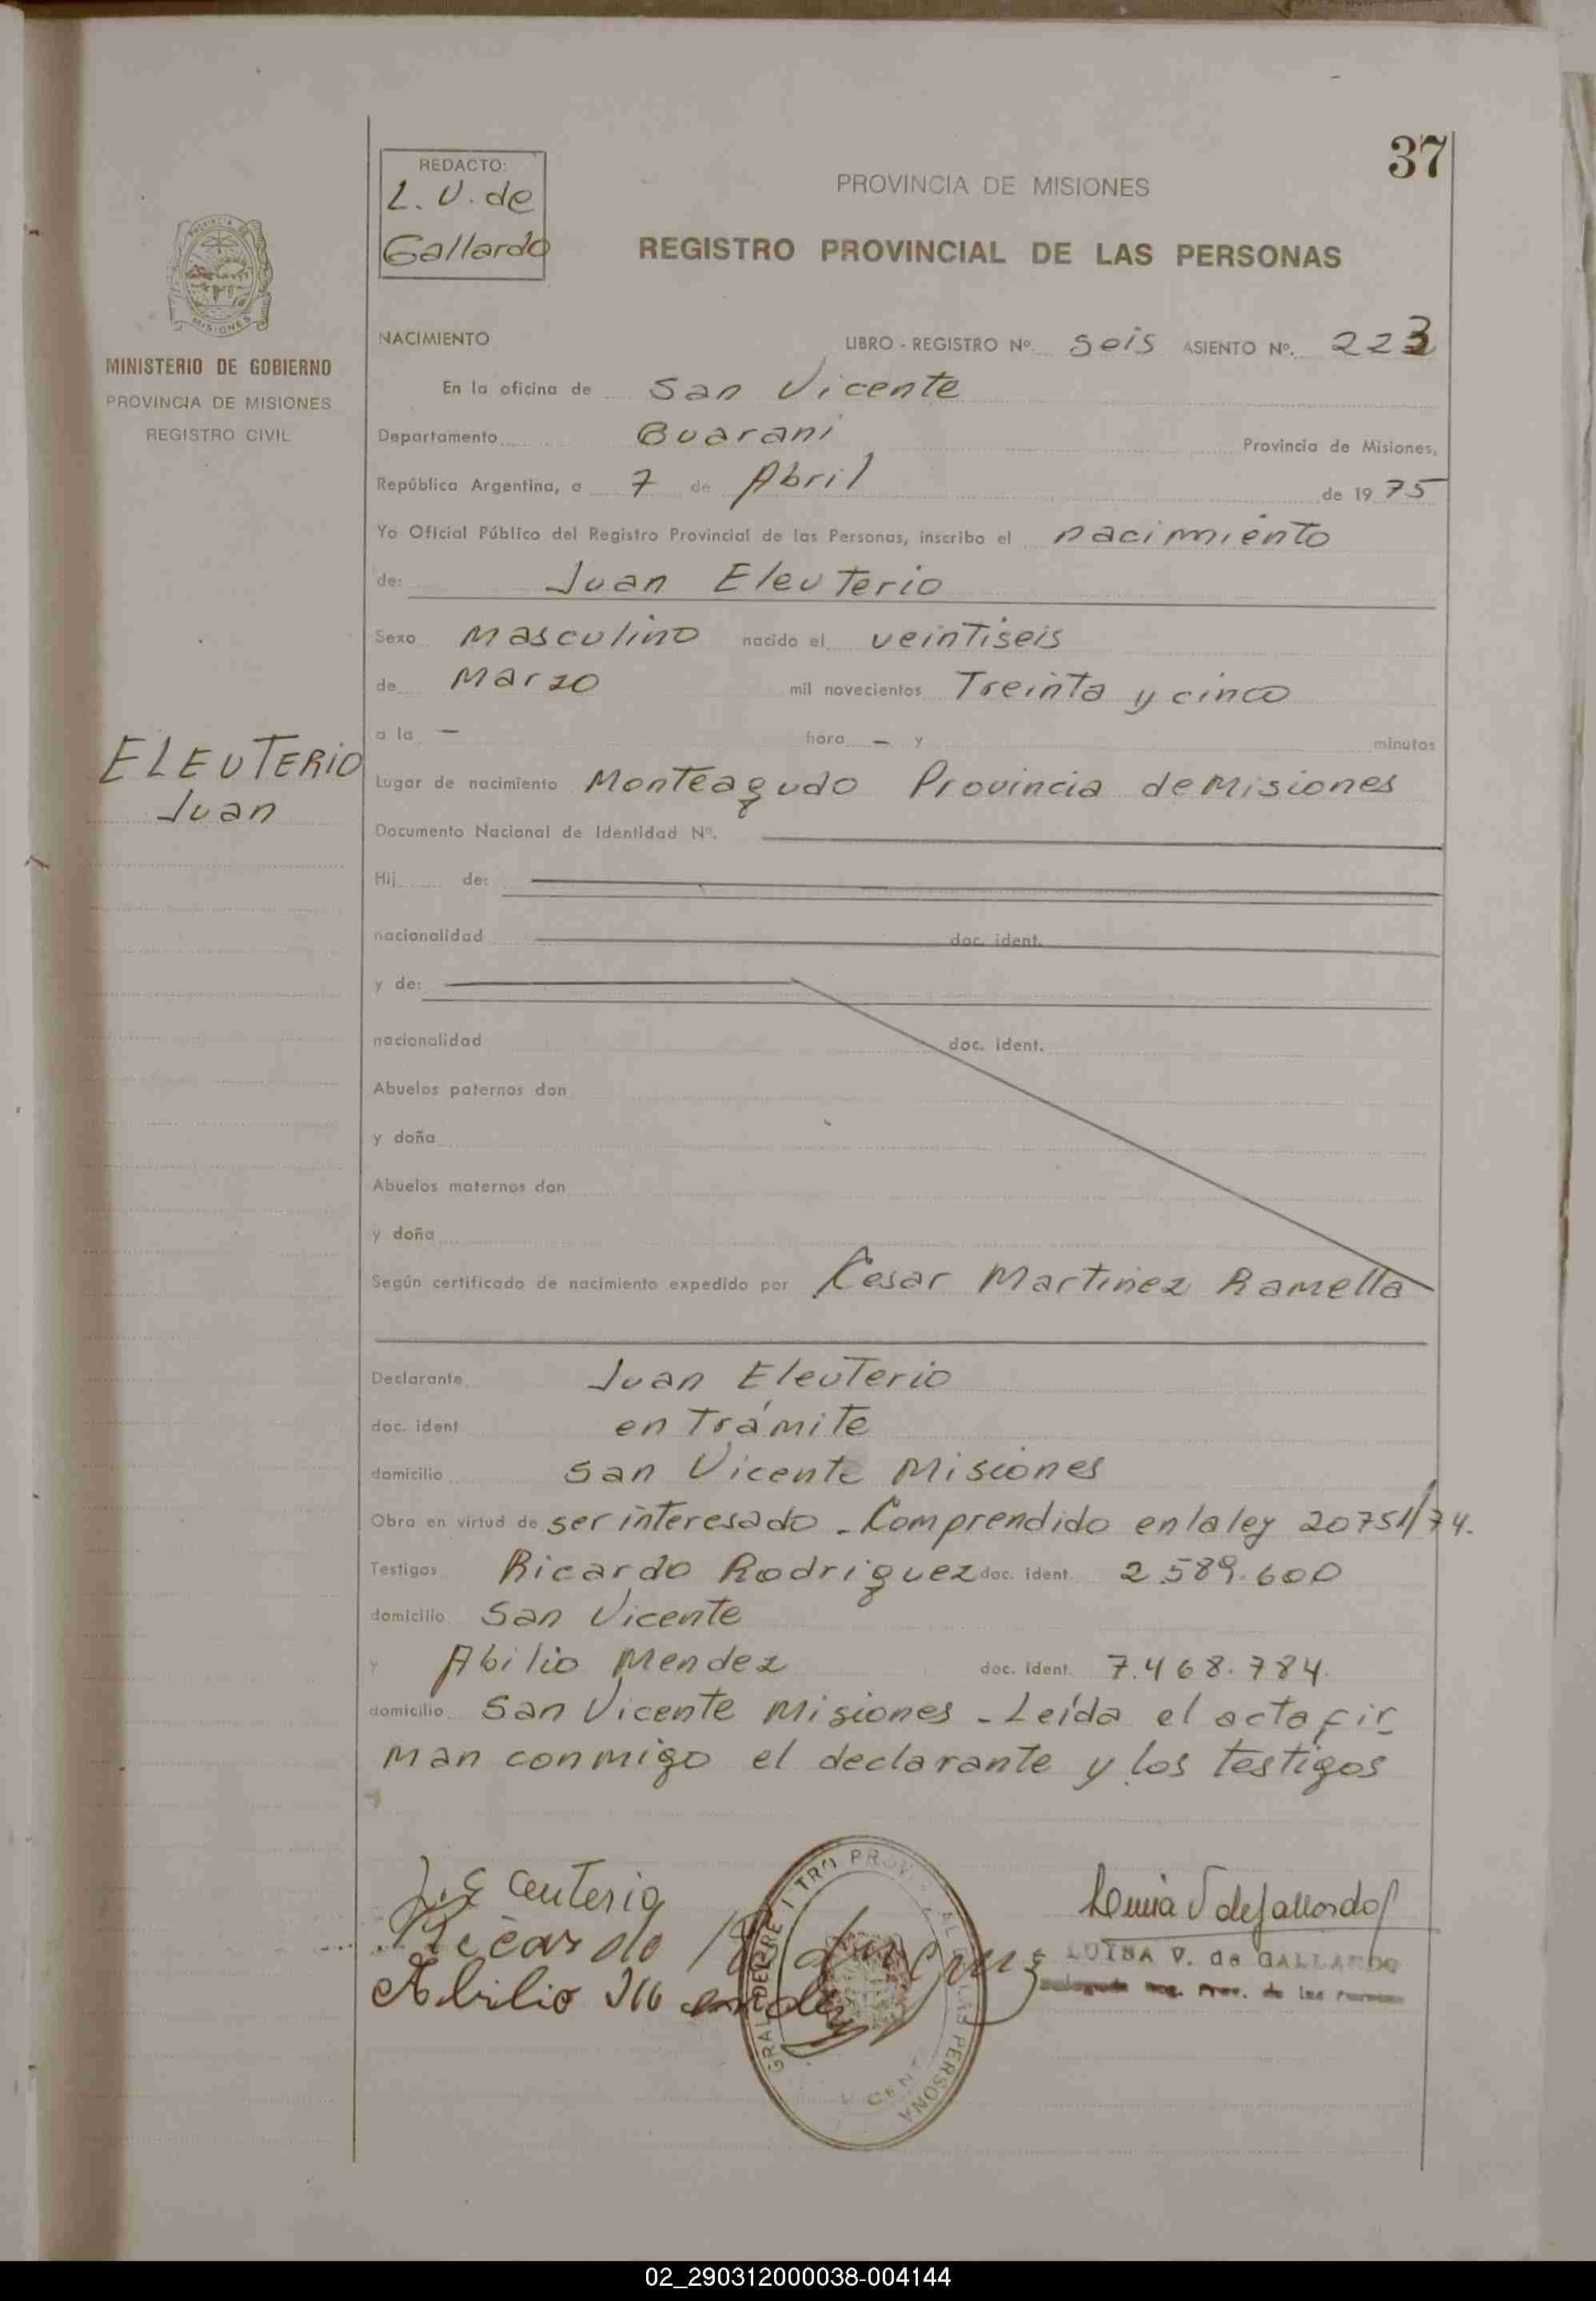 37
REDACTO:
L. V. de
Gallardo
PROVINCIA DE MISIONES
REGISTRO PROVINCIAL DE LAS PERSONAS
PROVINCIA DE
MISIONES
MINISTERIO DE GOBIERNO
PROVINCIA DE MISIONES
REGISTRO CIVIL
NACIMIENTO LIBRO - REGISTRO Nº. seis ASIENTO Nº. 223
En la oficina de San Vicente
Departamento Guarani Provincia de Misiones,
República Argentina, a 7 de Abril de 19 75
Yo Oficial Público del Registro Provincial de las Personas, inscribo el nacimiento
de: Juan Eleuterio
Sexo Masculino nacido el veintiseis
de Marzo mil novecientos Treinta y cinco
a la — hora — y minutos
ELEUTERIO
Juan
Lugar de nacimiento Monteagudo Provincia de Misiones
Documento Nacional de Identidad Nº.
Hij de:
nacionalidad doc. ident.
y de:
nacionalidad doc. ident.
Abuelos paternos don
y doña
Abuelos maternos don
y doña
Según certificado de nacimiento expedido por Cesar Martinez Ramella
Declarante Juan Eleuterio
doc. ident en Trámite
domicilio San Vicente Misiones
Obra en virtud de ser interesado - Comprendido en la ley 20751/74.
Testigos Ricardo Rodriguez doc. ident. 2.589.600
domicilio San Vicente
y Abilio Mendez doc. ident. 7.468.784.
domicilio San Vicente Misiones - Leída el acta fir
man conmigo el declarante y los testigos
Ricardo
Abilio Mendez
LUISA V. de GALLARDO
Reg. Prov. de las Personas
02_290312000038-004144